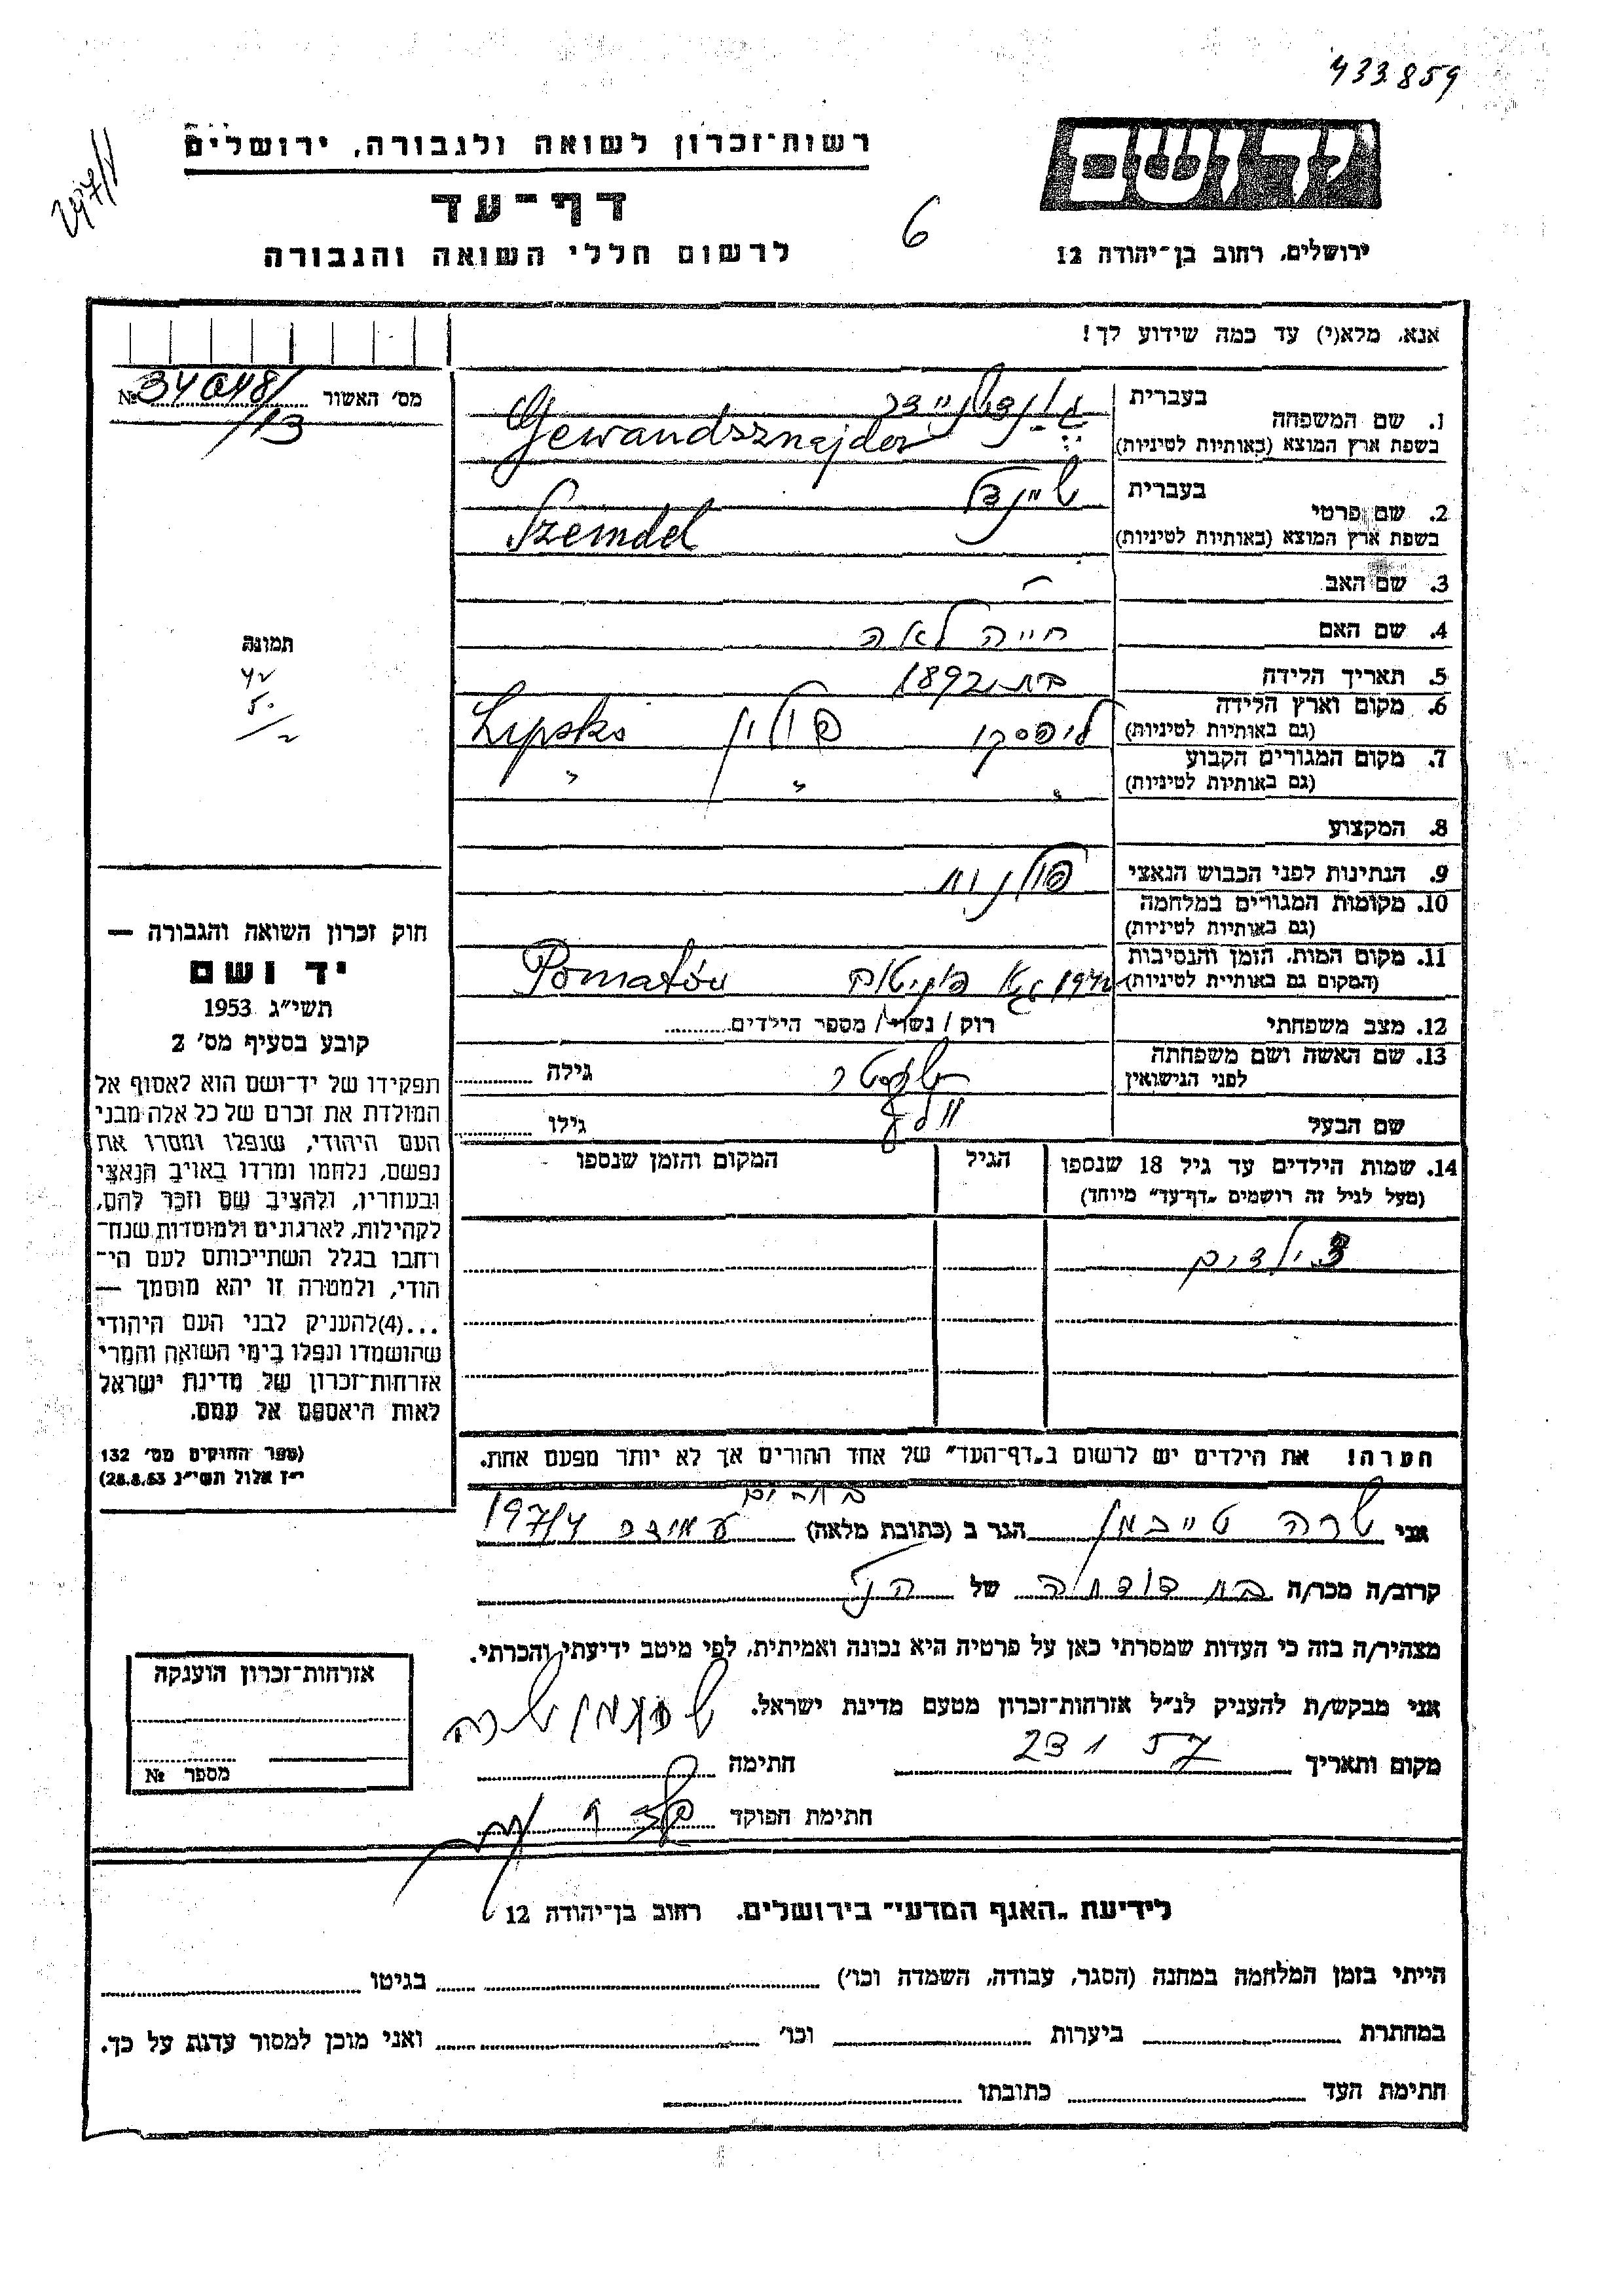 433859
רשות־זכרון לשואה ולגבורה, ירושלים
דף־עד
לרשום חללי השואה והגבורה
6
ירושלים, רחוב בן־יהודה 12
אנא, מלא(י) עד כמה שידוע לך!
מס' האשור № 340481/13
1. שם המשפחה
בעברית
בשפת ארץ המוצא (באותיות לטיניות) Gewandsznajder
2. שם פרטי
בעברית שיינדל
בשפת ארץ המוצא (באותיות לטיניות) Szeindel
3. שם האב
4. שם האם חייה לאה
5. תאריך הלידה 1892
6. מקום וארץ הלידה (גם באותיות לטיניות) ליפסקו פולין Lipsko
7. מקום המגורים הקבוע (גם באותיות לטיניות) " " "
8. המקצוע
9. הנתינות לפני הכבוש הנאצי פולנית
10. מקומות המגורים במלחמה (גם באותיות לטיניות)
11. מקום המות, הזמן והנסיבות (המקום גם באותיות לטיניות) 1942
12. מצב משפחתי רוק / נשוי / מספר הילדים
13. שם האשה ושם משפחתה לפני הנישואין גילה
שם הבעל וולף גילו
14. שמות הילדים עד גיל 18 שנספו (מעל לגיל זה רושמים "דף־עד" מיוחד) הגיל המקום והזמן שנספו
3 ילדים
הערה! את הילדים יש לרשום ב"דף־העד" של אחד ההורים אך לא יותר מפעם אחת.
תמונה
חוק זכרון השואה והגבורה —
יד ושם
תשי"ג 1953
קובע בסעיף מס' 2
תפקידו של יד־ושם הוא לאסוף אל
המולדת את זכרם של כל אלה מבני
העם היהודי, שנפלו ומסרו את
נפשם, נלחמו ומרדו באויב הנאצי
ובעוזריו, ולהציב שם וזכר להם,
לקהילות, לארגונים ולמוסדות שנח־
רחבו בגלל השתייכותם לעם הי־
הודי, ולמטרה זו יהא מוסמך —
...(4)להעניק לבני העם היהודי
שהושמדו ונפלו בימי השואה והמרי
אזרחות־זכרון של מדינת ישראל
לאות היאספם אל עמם.
(ספר החוקים מס' 132
י"ז אלול תשי"ג 28.8.53)
אני שרה טייבמן הגר ב (כתובת מלאה) 197/4
קרוב/ה מכר/ה בת דודתה של הנ"ל
מצהיר/ה בזה כי העדות שמסרתי כאן על פרטיה היא נכונה ואמיתית, לפי מיטב ידיעתי והכרתי.
אני מבקש/ת להעניק לנ"ל אזרחות־זכרון מטעם מדינת ישראל.
מקום ותאריך 23 1 57 חתימה
חתימת הפוקד
אזרחות־זכרון הוענקה
מספר №
לידיעת "האגף המדעי" בירושלים. רחוב בן־יהודה 12
הייתי בזמן המלחמה במחנה (הסגר, עבודה, השמדה וכו') בגיטו
במחתרת ביערות וכו' ואני מוכן למסור עדות על כך.
חתימת העד כתובתו